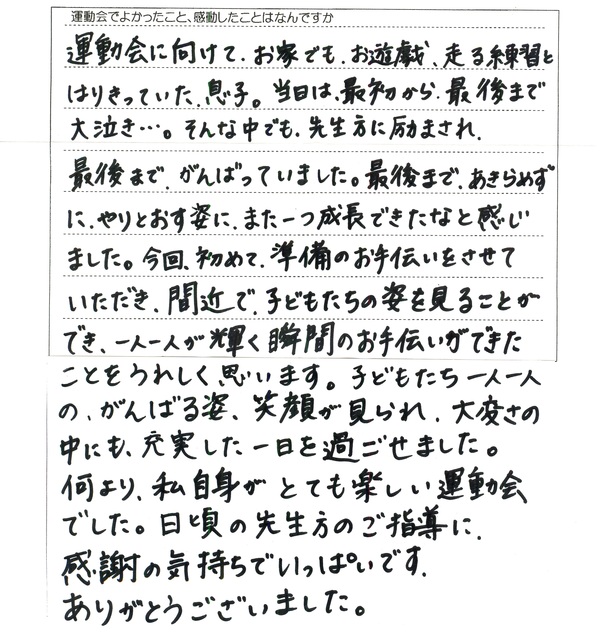 運動会でよかったこと、感動したことはなんですか
運動会に向けて、お家でも、お遊戯、走る練習と
はりきっていた、息子。当日は、最初から、最後まで
大泣き…。そんな中でも、先生方に励まされ、
最後まで、がんばっていました。最後まで、あきらめず
に、やりとおす姿に、また一つ成長できたなと感じ
ました。今回、初めて、準備のお手伝いをさせて
いただき、間近で、子どもたちの姿を見ることが
でき、一人一人が輝く瞬間のお手伝いができた
ことをうれしく思います。子どもたち一人一人
の、がんばる姿、笑顔が見られ、大変さの
中にも、充実した一日を過ごせました。
何より、私自身がとても楽しい運動会
でした。日頃の先生方のご指導に、
感謝の気持ちでいっぱいです。
ありがとうございました。